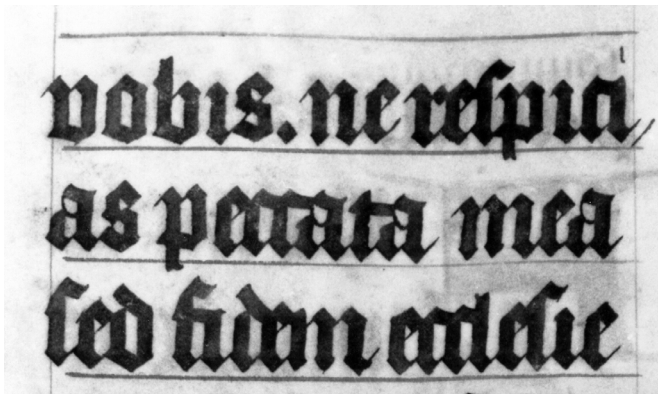 vobis. ne respici
as peccata mea
sed fidem ecclesie